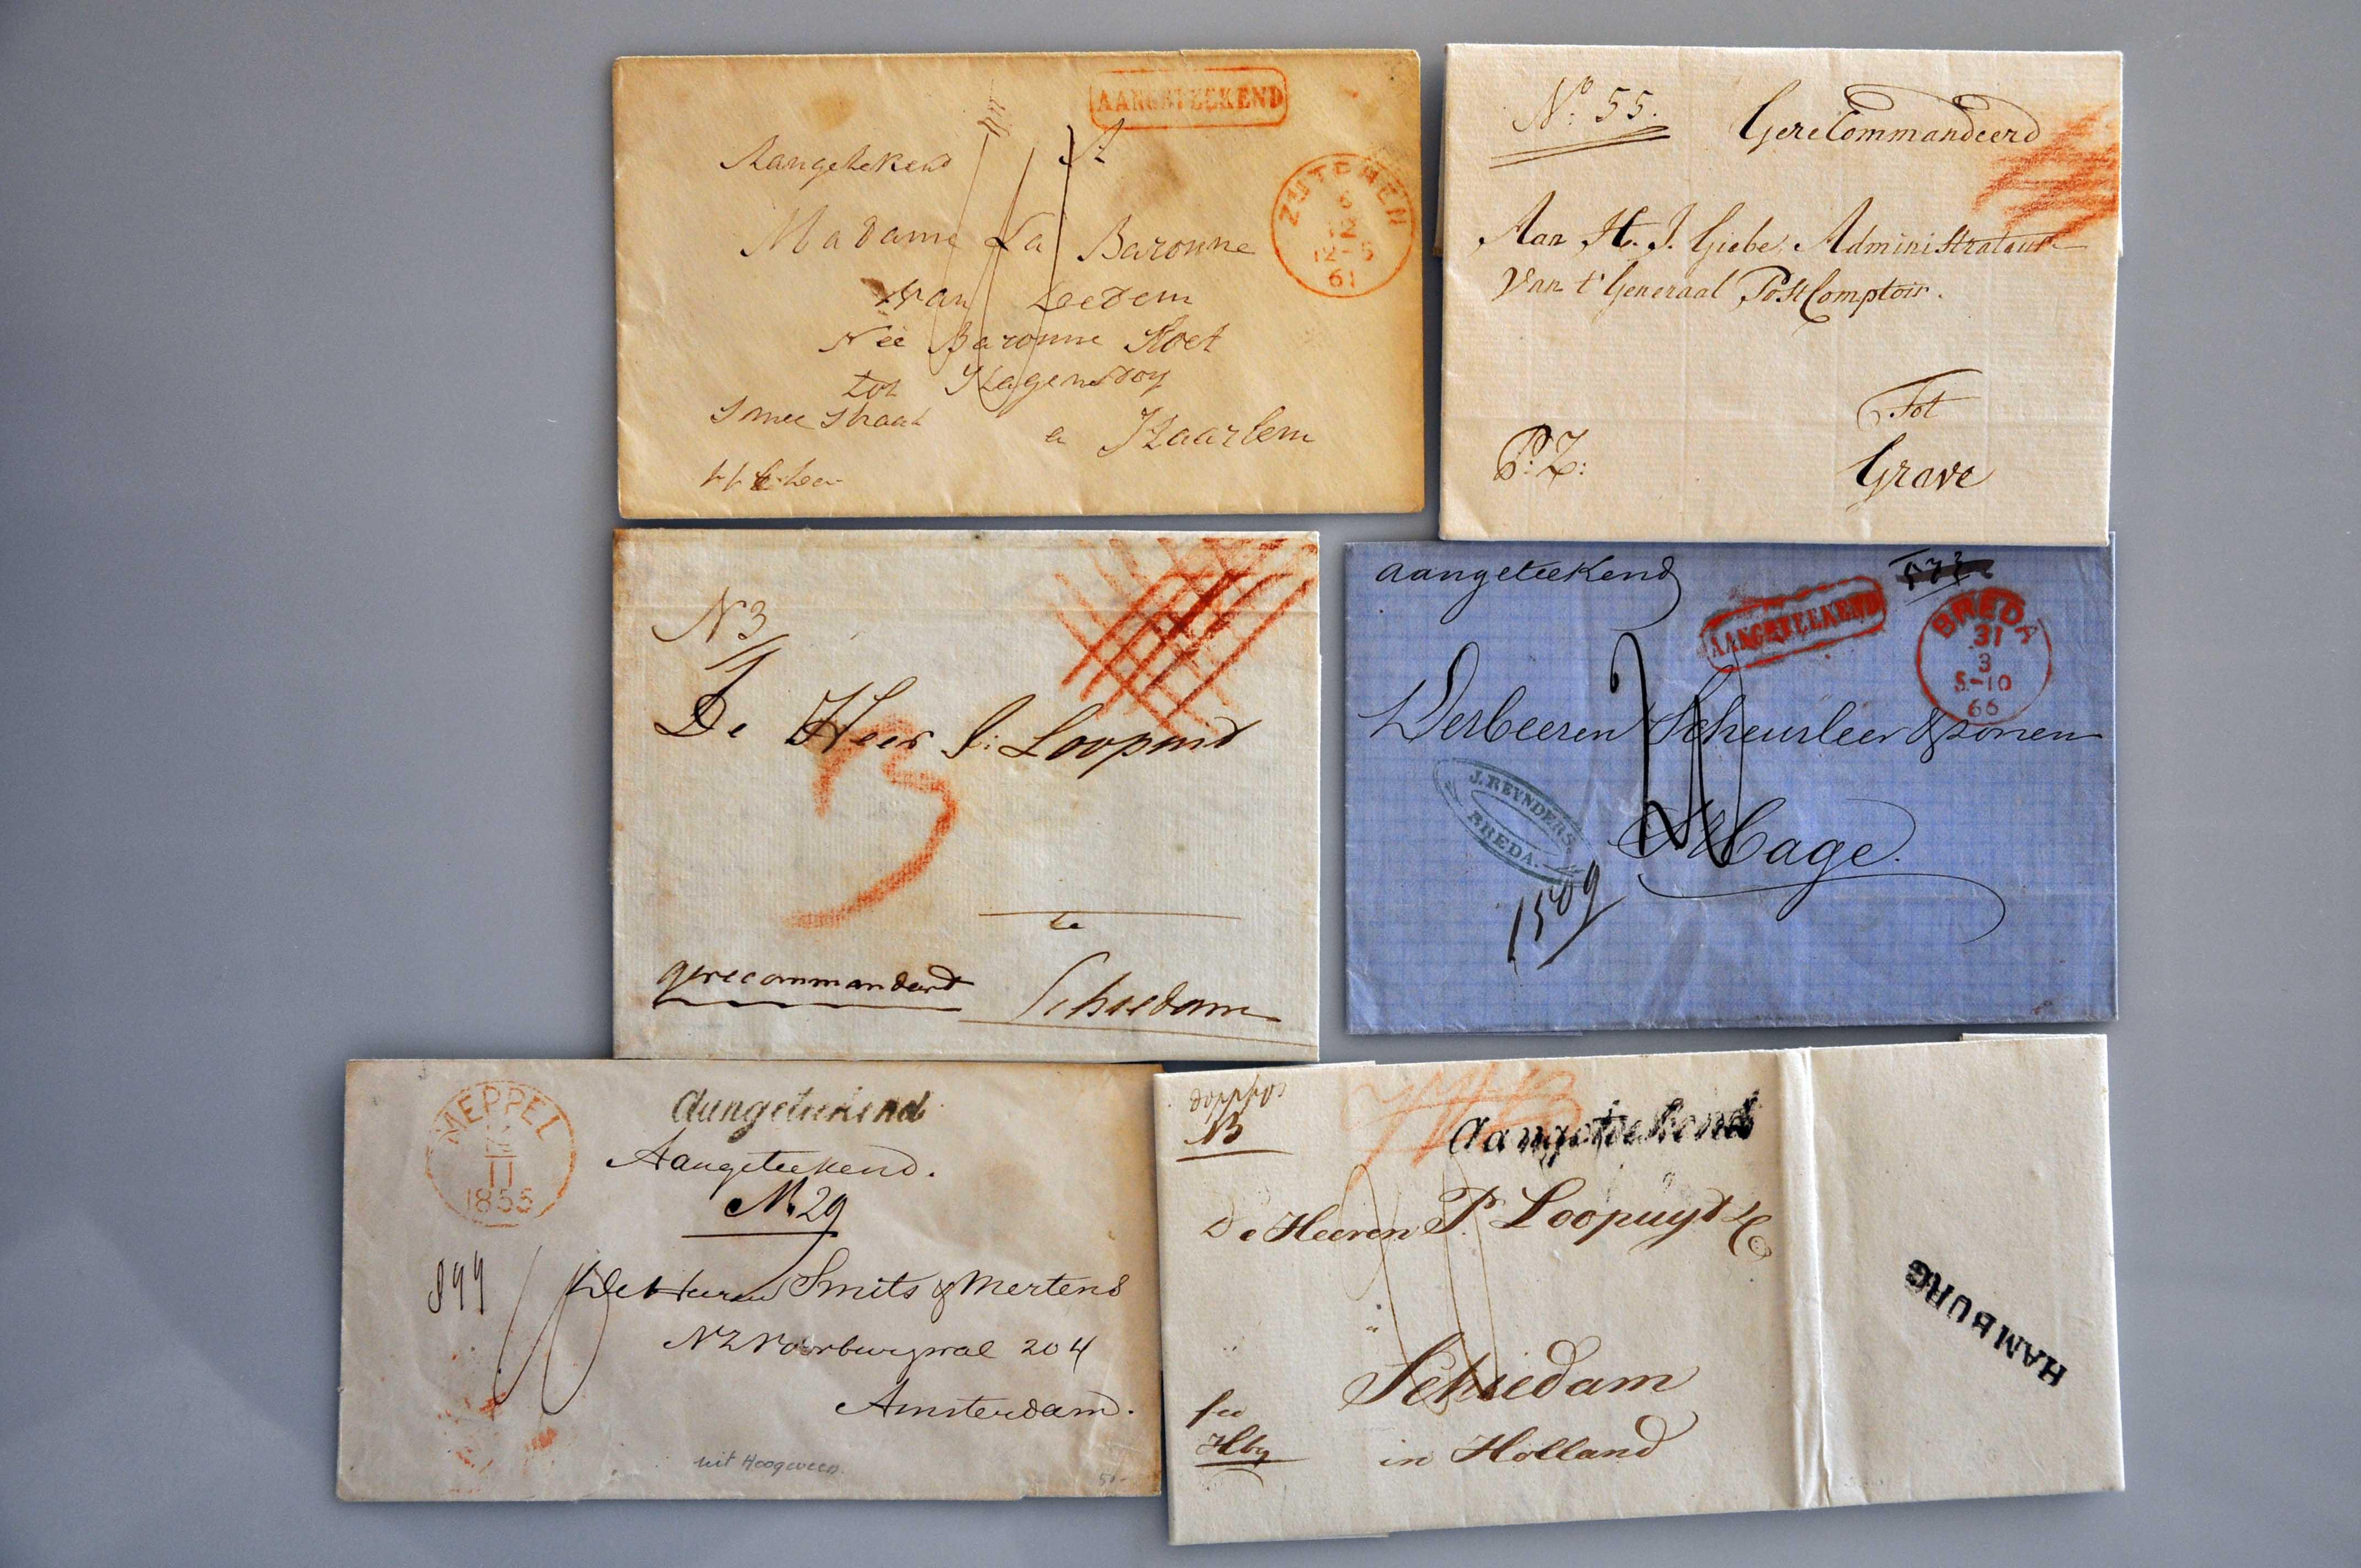 AANGETEEKEND
Aangetekend
ZUTPHEN
12
12-5
61
Madame La Baronne
van
Née Baronne
tot
Smee Straat
Haarlem
No. 55.
GereCommandeerd
Aan H. J. Giebe Administrateur
Van t' Generaal PostComptoir.
P: Z:
Tot
Grave
N 3
De Heer
3
te
gerecommandeerd
Schiedam
aangeteekend
AANGETEEKEND
BREDA
31
3
5-10
66
Scheurleer & zonen
J. REYNDERS
BREDA.
1509
Hage.
MEPPEL
11
1855
Aangeteekend
Aangeteekend.
No. 29
899
10
De Heeren Smits & Mertens
NZ Voorburgwal 204
Amsterdam.
uit Hoogeveen.
50-
N3
Aangeteekend
De Heeren P. Loopuyt & Co
Schiedam
Hbg
in Holland
HAMBURG